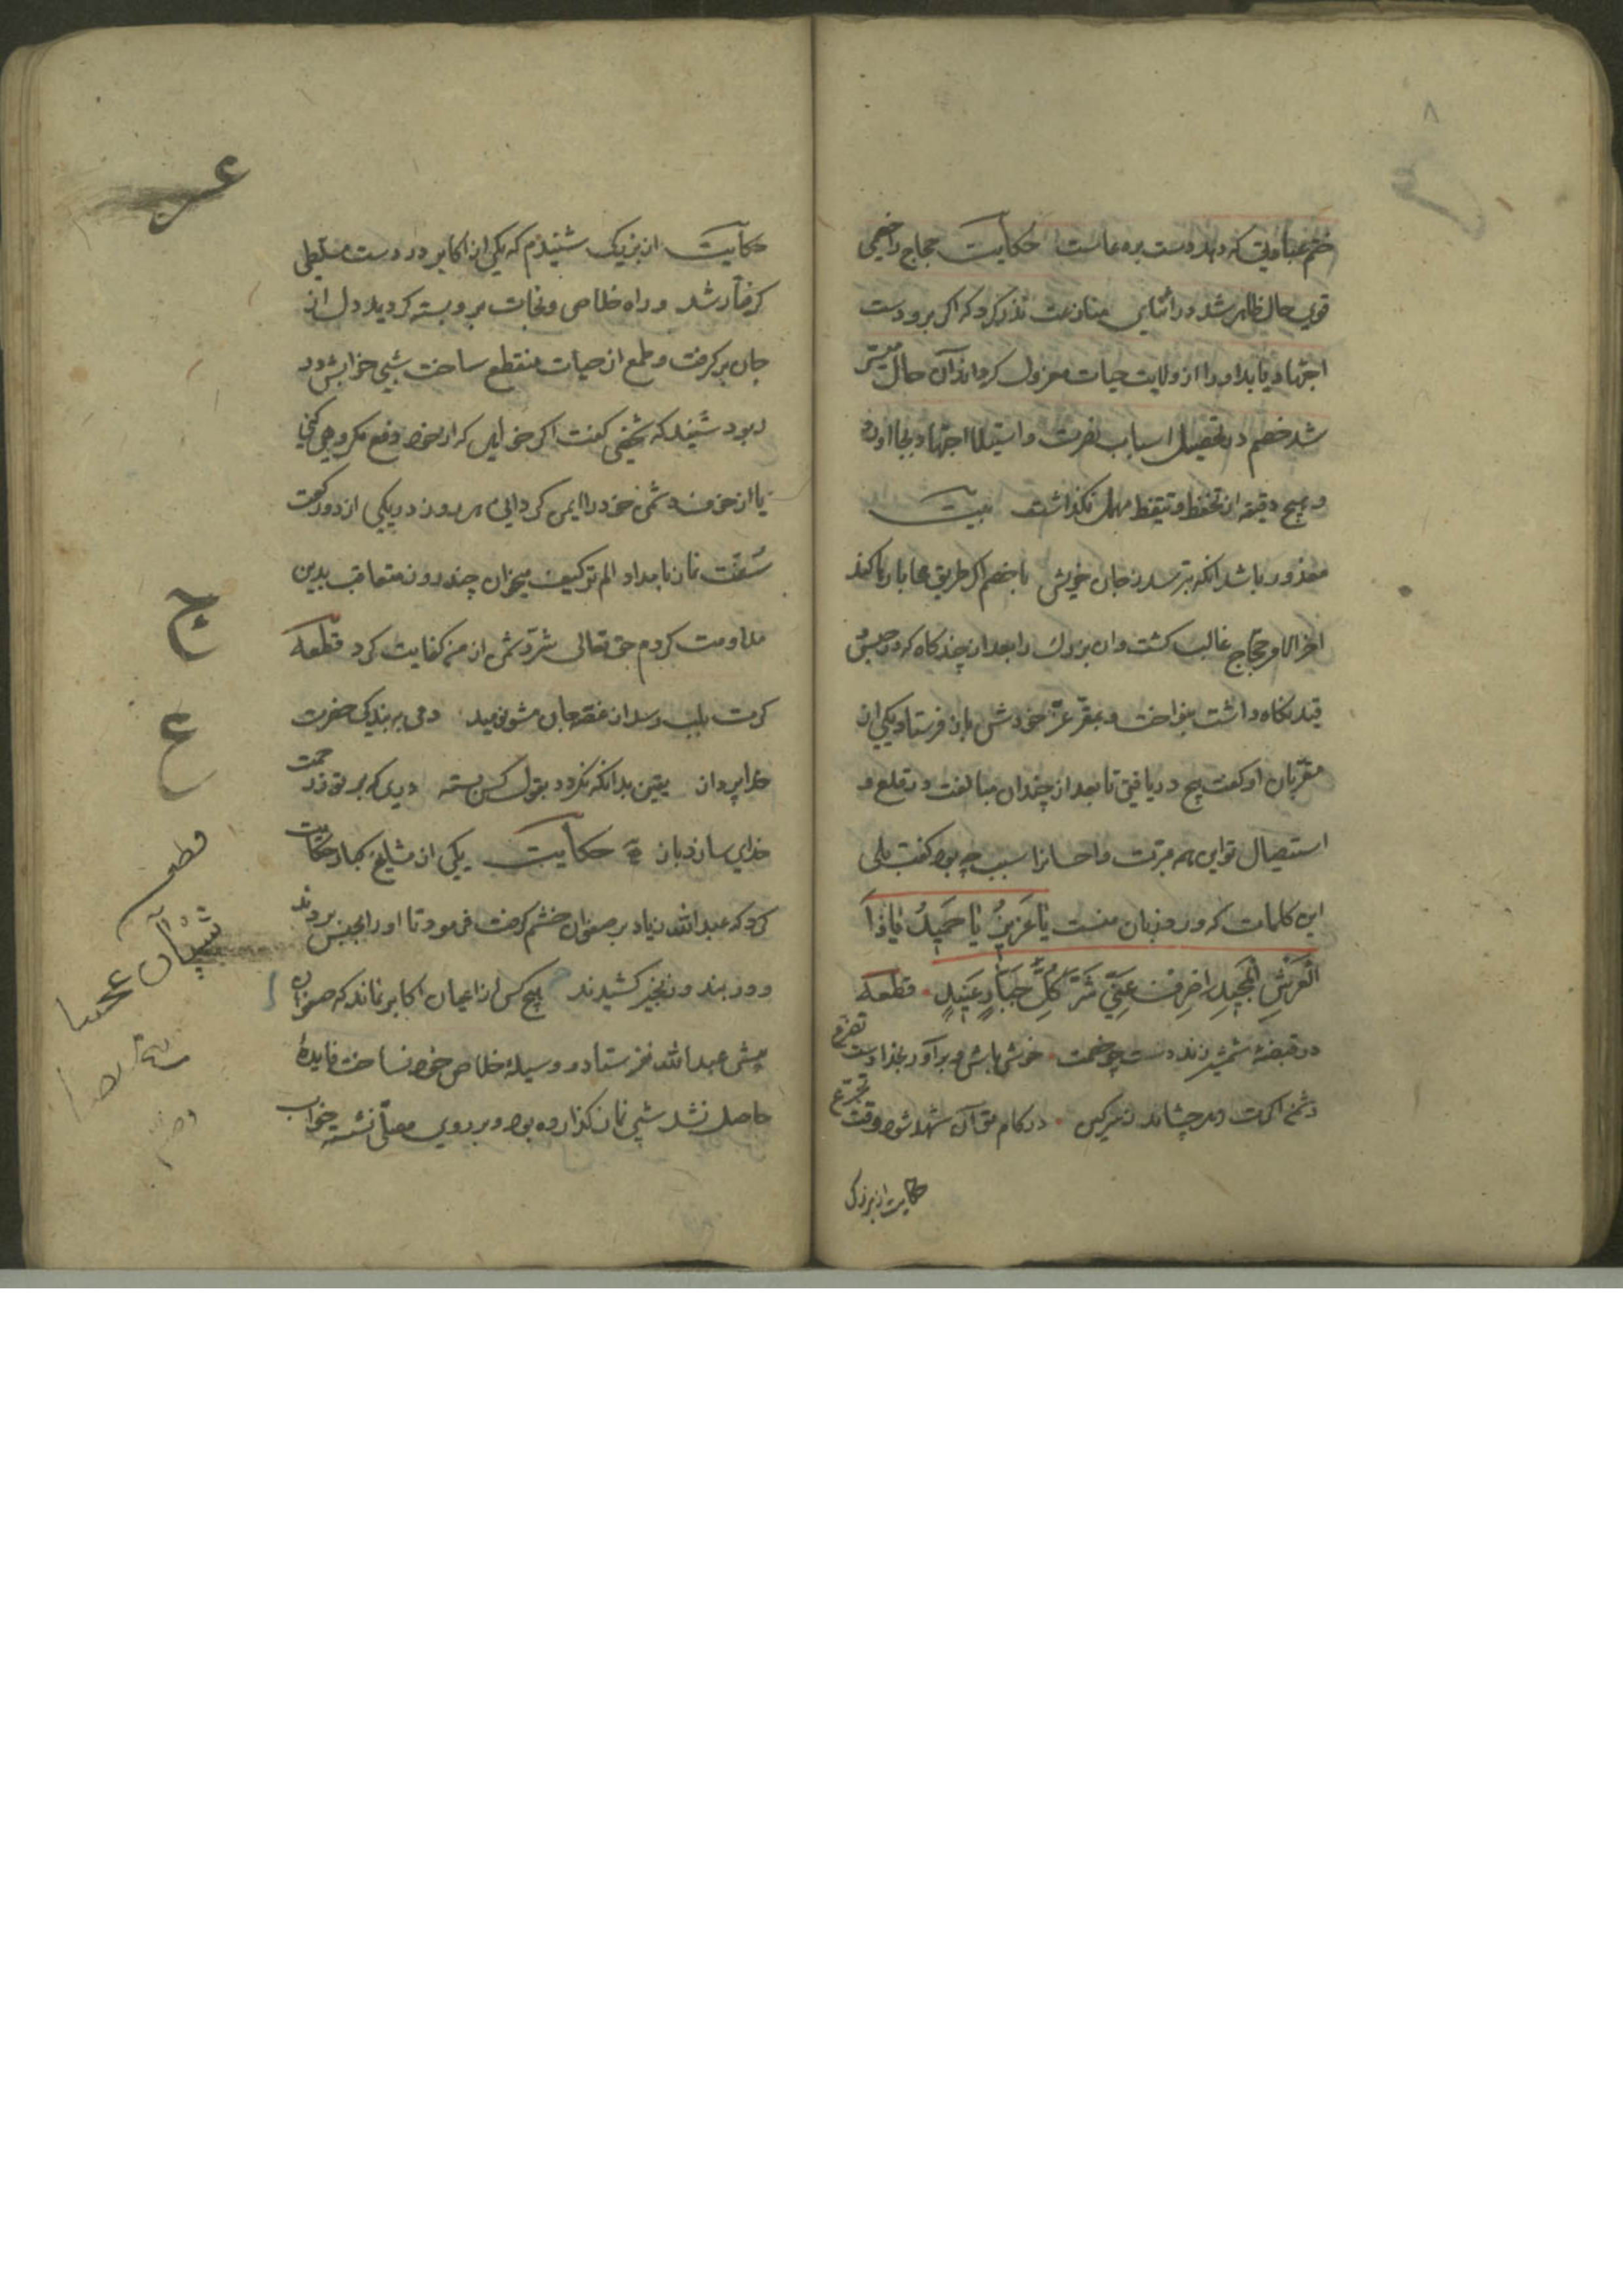 حکایت حجاج را خصمی
قوی حال ظاهر شد در اثنای منازعت نذر کرد که اگر برو دست
او را از ولایت حیات معزول کرداند آن حال میسر
شد خصم در تحصیل اسباب نصرت و استیلا اجتهاد بجا اورد
و هیچ دقیقه از تحفظ و تیقظ مهمل نکذاشت بیت
معذور باشد انکه بترسد ز جان خویش با خصم اکر طریق محابا رها کند
اخر الامر حجاج غالب کشت و ان بزرك را بعد از چند کاه که در حبس و
قید نکاه داشت بنواخت و بمقر عز خودش باز فرستاد یکی از
مقربان او کفت هیچ دریافتی تا بعد از چندان مبالغت در قلع و
استیصال تو این همه مرتبت و احسانرا سبب چه بود کفت بلی
این کلمات که ورد زبان منست یَا عَزِیزُ یَا حَمِیدُ یَا ذَا
الْعَرْشِ الْمَجِیدِ اصْرِفْ عَنِّی شَرَّ کُلِّ جَبَّارٍ عَنِیدٍ قطعه
در قبضهٔ شمشیر زند دست چو خصمت خوش باش و برآور بخدا دست تضرع
دشمن اکرت زهر چشاند در کام تو آن شهد شود وقت تجرع
حکایت از بزرکی
حکایت از بزرکی شنیدم که یکی از اکابر در دست متغلبی
کرفتار شد و راه خلاص و نجات برو بسته کردید دل از
جان برکرفت و طمع از حیات منقطع ساخت شبی خوابش در
ربود شنید که شخصی کفت اکر خواهی که از خود دفع مکروهی کنی
یا از خوف دشمن خود را ایمن کردانی هر روز در یکی از دو رکعت
سنت نماز بامداد الم تر کیف میخوان چند روز متعاقب بدین
مداومت کردم حق تعالی شر دشمن از من کفایت کرد قطعه
کرت بلب رسد از غصه جان مشو نومید دمی به بندکی حضرت
خدا پرداز یقین بدانکه نکردد بقول کس بسته دری که بر تو ز رحمت
خدای سازد باز حکایت یکی از مشایخ کبار حکایت
کرد که عبدالله زیاد بر صفوان خشم کرفت فرمود تا او را بحبس بردند
و در بند و زنجیر کشیدند هیچ کس از اعیان اکابر نماند که صفوان
پیش عبدالله نفرستاد و وسیلهٔ خلاص خود نساخت فایدهٔ
حاصل نشد شبی نماز کذارده بود و بر روی مصلی نشسته خواب
ج
ع